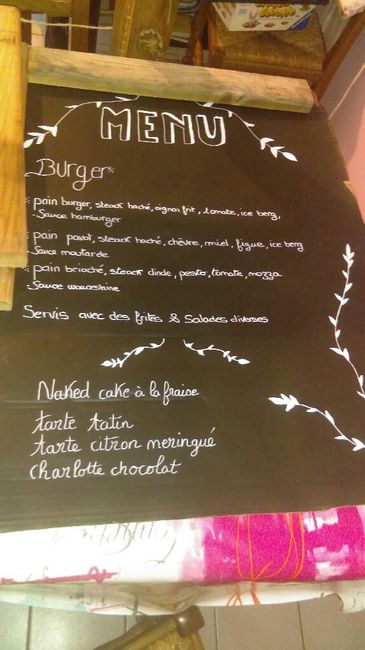 MENU
Burger
: pain burger, steack haché, oignon frit, tomate, ice berg,
- Sauce hamburger
: pain pavot, steack haché, chêvre, miel, figue, ice berg
Sauce moutarde
: pain brioché, steack dinde, pesto, tomate, mozza
- Sauce worcestshire
Servis avec des frites & Salades diverses
Naked cake à la fraise
tarte tatin
tarte citron meringué
Charlotte chocolat